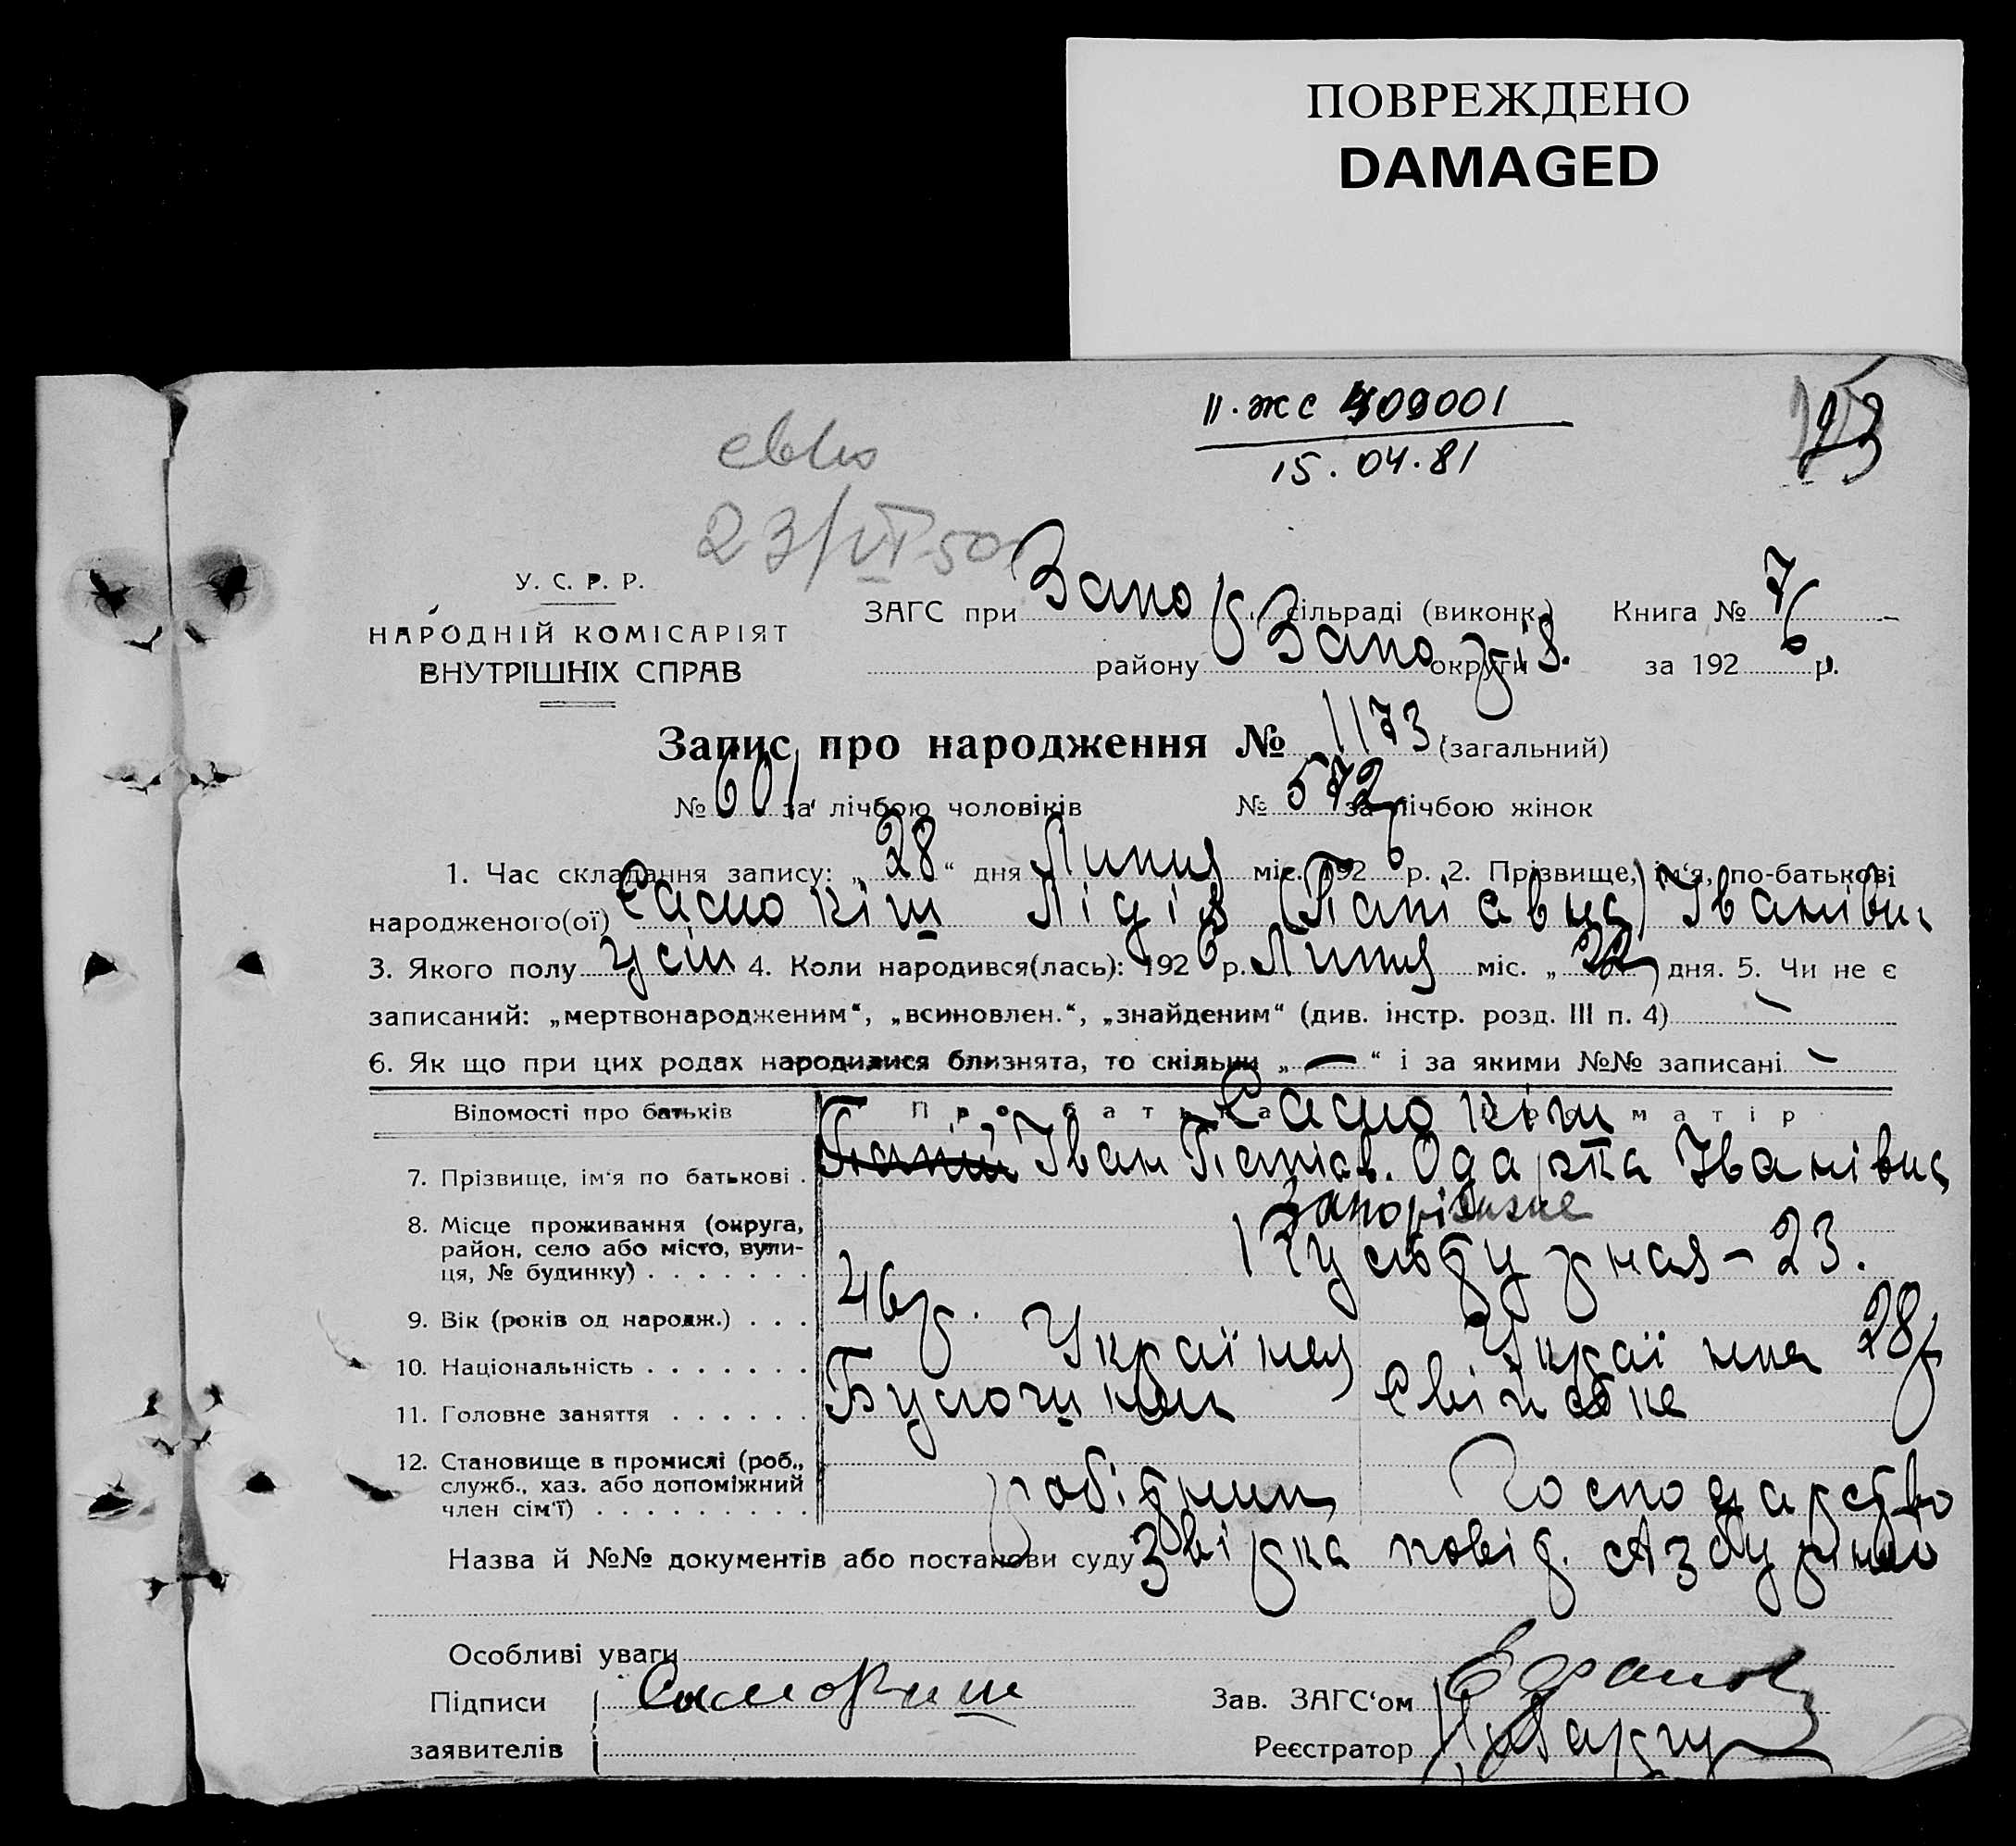 ПОВРЕЖДЕНО
DAMAGED
II·жс 409001
15.04.81
23
23/VI 50
У. С. Р. Р.
НАРОДНІЙ КОМІСАРІЯТ
ВНУТРІШНІХ СПРАВ
ЗАГС при Запо сільраді (виконк.) Книга № 7
району Запо округи за 1926 р.
Запис про народження № 1173 (загальний)
№ 601 за лічбою чоловіків № 572 за лічбою жінок
1. Час складання запису: „28“ дня Липня міс. 1926 р. 2. Прізвище, ім'я, по-батькові
народженого(ої) Самокіш Лідія Іванівн
3. Якого полу 4. Коли народився(лась): 1926 р. Липня міс. „22„ дня. 5. Чи не є
записаний: „мертвонародженим“, „всиновлен.“, „знайденим“ (див. інстр. розд. III п. 4) —
6. Як що при цих родах народилися близнята, то скільки „—“ і за якими №№ записані —
Відомості про батьків Про батька Про матір
Самокіш
7. Прізвище, ім'я по батькові . Іван Папіов. Одарка Іванівна
8. Місце проживання (округа, район, село або місто, вулиця, № будинку) . . . . . . . Запоріжже
23.
9. Вік (років од народж.) . . . 46р. 28р
10. Національність . . . . . . . Українец Українка
11. Головне заняття . . . . . . Булочник
12. Становище в промислі (роб., служб., хаз. або допоміжний член сім'ї) . . . . . . . . . робітник Господарство
Назва й №№ документів або постанови суду
Особливі уваги
Підписи Самокиш Зав. ЗАГС'ом
заявителів Реєстратор